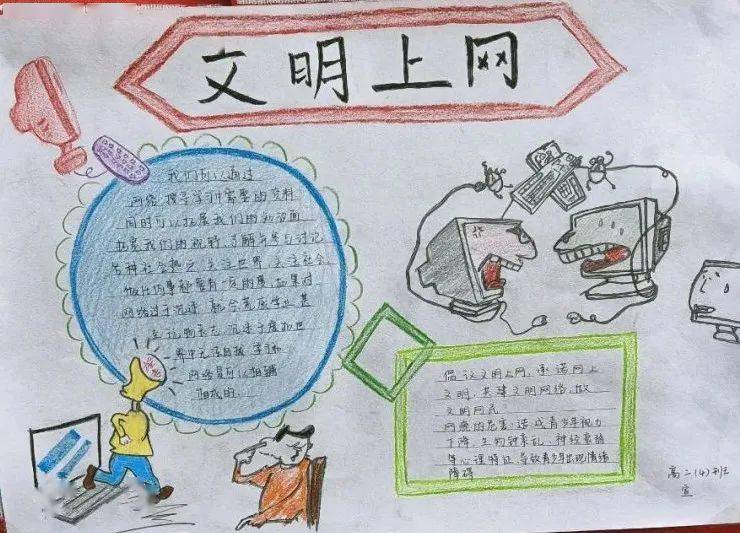 文明上网
我们可以通过
网络搜寻学习所需要的资料
同时可以拓展我们的知识面
拓宽我们的视野,了解并参与讨论
各种社会热点,关注世界,关注社会
但凡事都要有一定的度,如果对
网络过于沉迷,就会荒废学业甚
至玩物丧志,沉迷于虚拟世
界中无法自拔,学习和
网络是可以相辅
相成的.
倡议文明上网,承诺网上
文明,共建文明网络,做
文明网民
网瘾的危害:造成青少年视力
下降,生物钟紊乱,神经衰弱
等心理特征,导致青少年出现情绪
障碍
高二(4)班
宣